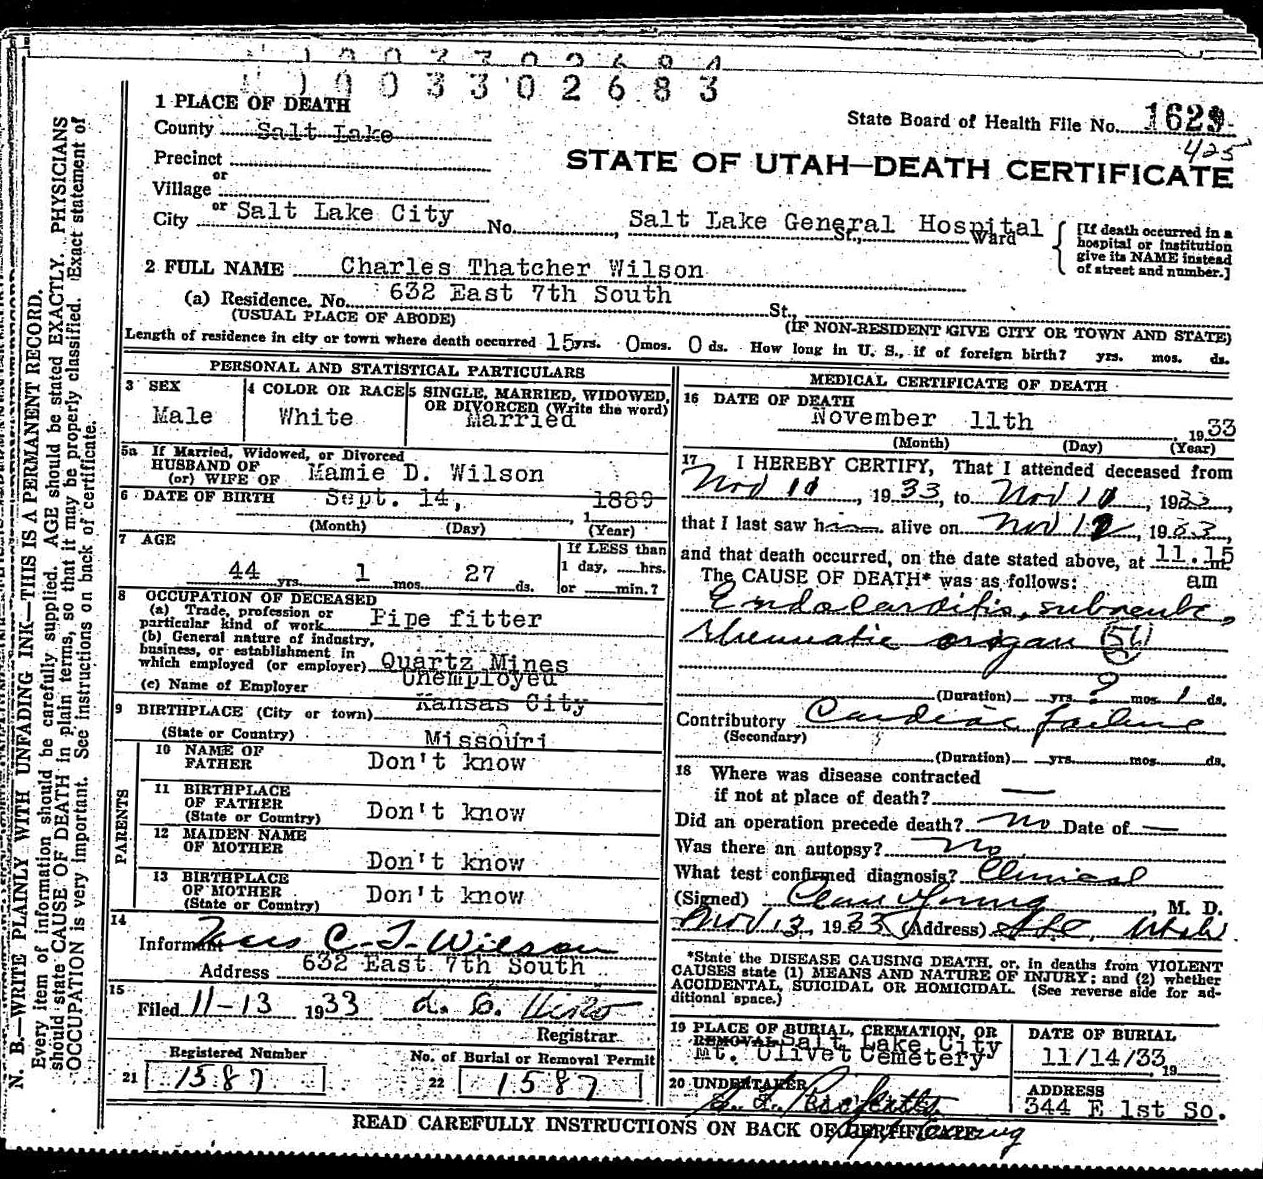 1003302684
1003302683
1 PLACE OF DEATH
County Salt Lake
State Board of Health File No. 1629
425
Precinct
or
STATE OF UTAH—DEATH CERTIFICATE
Village
or
City Salt Lake City No. , Salt Lake General Hospital St., Ward
[If death occurred in a hospital or institution give its NAME instead of street and number.]
2 FULL NAME Charles Thatcher Wilson
(a) Residence. No. 632 East 7th South St.,
(USUAL PLACE OF ABODE) (IF NON-RESIDENT GIVE CITY OR TOWN AND STATE)
Length of residence in city or town where death occurred 15 yrs. 0 mos. 0 ds. How long in U. S., if of foreign birth? yrs. mos. ds.
PERSONAL AND STATISTICAL PARTICULARS
3 SEX
Male
4 COLOR OR RACE
White
5 SINGLE, MARRIED, WIDOWED,
OR DIVORCED (Write the word)
Married
5a If Married, Widowed, or Divorced
HUSBAND OF
(or) WIFE OF Mamie D. Wilson
6 DATE OF BIRTH Sept. 14, 1889
, 1
(Month) (Day) (Year)
7 AGE
If LESS than
1 day, hrs.
44 yrs. 1 mos. 27 ds. or min.?
8 OCCUPATION OF DECEASED
(a) Trade, profession or
particular kind of work Pipe fitter
(b) General nature of industry,
business, or establishment in
which employed (or employer) Quartz Mines
Unemployed
(c) Name of Employer
9 BIRTHPLACE (City or town) Kansas City
(State or Country) Missouri
PARENTS
10 NAME OF
FATHER Don't know
11 BIRTHPLACE
OF FATHER
(State or Country) Don't know
12 MAIDEN NAME
OF MOTHER Don't know
13 BIRTHPLACE
OF MOTHER
(State or Country) Don't know
14
Informant C. T. Wilson
Address 632 East 7th South
15
Filed 11-13 1933
Registrar
Registered Number
21 1587
No. of Burial or Removal Permit
22 1587
MEDICAL CERTIFICATE OF DEATH
16 DATE OF DEATH
November 11th 1933
(Month) (Day) (Year)
17 I HEREBY CERTIFY, That I attended deceased from
Nov 11, 1933, to Nov 11, 1933,
that I last saw h alive on Nov , 1933,
and that death occurred, on the date stated above, at 11.15 m.
am
The CAUSE OF DEATH* was as follows:
Endocarditis, subacute,
Rheumatic origin (56)
(Duration) yrs. ? mos. 1 ds.
Contributory Cardiac failure
(Secondary)
(Duration) yrs. mos. ds.
18 Where was disease contracted
if not at place of death? —
Did an operation precede death? No Date of —
Was there an autopsy? No
What test confirmed diagnosis? Clinical
(Signed) Young, M. D.
Nov 13, 1933 (Address) SLC, Utah
*State the DISEASE CAUSING DEATH, or, in deaths from VIOLENT
CAUSES state (1) MEANS AND NATURE OF INJURY; and (2) whether
ACCIDENTAL, SUICIDAL OR HOMICIDAL. (See reverse side for ad-
ditional space.)
19 PLACE OF BURIAL, CREMATION, OR
REMOVAL Salt Lake City
Mt. Olivet Cemetery
DATE OF BURIAL
11/14/33, 19
20 UNDERTAKER
ADDRESS
344 E 1st So.
READ CAREFULLY INSTRUCTIONS ON BACK OF CERTIFICATE
N. B.—WRITE PLAINLY WITH UNFADING INK—THIS IS A PERMANENT RECORD.
Every item of information should be carefully supplied. AGE should be stated EXACTLY. PHYSICIANS
should state CAUSE OF DEATH in plain terms, so that it may be properly classified. Exact statement of
OCCUPATION is very important. See instructions on back of certificate.